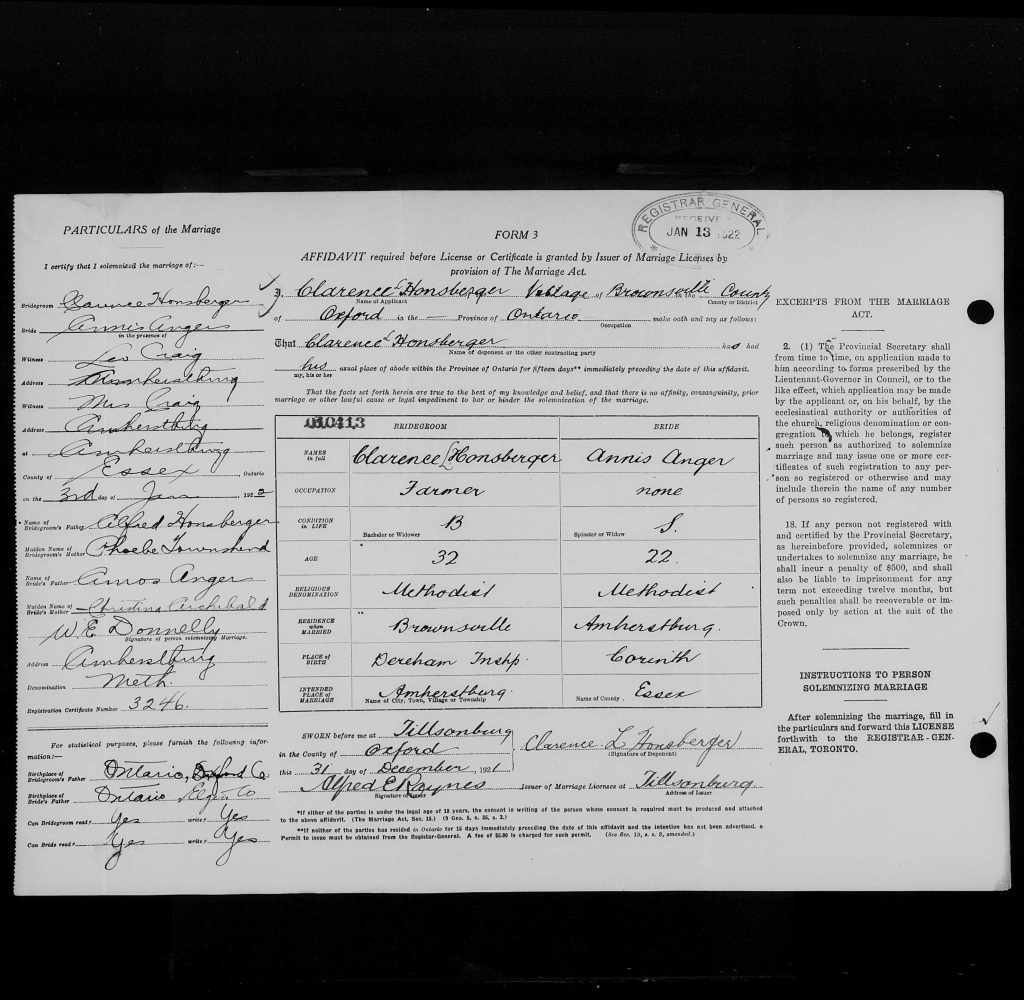 REGISTRAR GENERAL
RECEIVED
JAN 13 1922
PARTICULARS of the Marriage
I certify that I solemnized the marriage of:—
Bridegroom Clarence Honsberger
Bride Annis Anger
in the presence of
Witness Leo Craig
Address Amherstburg
Witness Mrs Craig
Address Amherstburg
at Amherstburg
County of Essex Ontario
on the 3rd day of Jan 1922
Name of Bridegroom's Father Alfred Honsberger
Maiden Name of Bridegroom's Mother Phoebe Townshend
Name of Bride's Father Amos Anger
Maiden Name of Bride's Mother Christina Archibald
W. E. Donnelly
Signature of person solemnizing Marriage.
Address Amherstburg
Denomination Meth.
Registration Certificate Number 3246.
For statistical purposes, please furnish the following information:—
Birthplace of Bridegroom's Father Ontario, Oxford Co
Birthplace of Bride's Father Ontario Elgin Co
Can Bridegroom read? Yes write? Yes
Can Bride read? Yes write? Yes
FORM 3
AFFIDAVIT required before License or Certificate is granted by Issuer of Marriage Licenses by
provision of The Marriage Act.
I, Clarence L Honsberger Village of Brownsville in the County
Name of Applicant County or District
of Oxford in the — Province of Ontario make oath and say as follows:
Occupation
That Clarence L Honsberger has had
Name of deponent or the other contracting party
his usual place of abode within the Province of Ontario for fifteen days** immediately preceding the date of this affidavit.
my, his or her
That the facts set forth herein are true to the best of my knowledge and belief, and that there is no affinity, consanguinity, prior
marriage or other lawful cause or legal impediment to bar or hinder the solemnization of the marriage.
010413 BRIDEGROOM BRIDE
NAMES in full Clarence L Honsberger Annis Anger
OCCUPATION Farmer none
CONDITION in LIFE B S.
Bachelor or Widower Spinster or Widow
AGE 32 22.
RELIGIOUS DENOMINATION Methodist Methodist
RESIDENCE when MARRIED Brownsville Amherstburg.
PLACE OF BIRTH Dereham Tnshp. Corinth
INTENDED PLACE OF MARRIAGE Amherstburg. Name of County. Essex
Name of City, Town, Village or Township
SWORN before me at Tillsonburg
in the County of Oxford
this 31 day of December, 1921
Clarence L Honsberger
(Signature of Deponent)
Alfred E Raynes Issuer of Marriage Licenses at Tillsonburg
Signature of Issuer Address of Issuer
*If either of the parties is under the legal age of 18 years, the consent in writing of the person whose consent is required must be produced and attached
to the above affidavit. (The Marriage Act, Sec. 15.) (9 Geo. 5, c. 35, s. 2.)
**If neither of the parties has resided in Ontario for 15 days immediately preceding the date of this affidavit and the intention has not been advertised, a
Permit to issue must be obtained from the Registrar-General. A fee of $5.00 is charged for such permit. (See Sec. 19, s. s. 5, amended.)
EXCERPTS FROM THE MARRIAGE
ACT.
2. (1) The Provincial Secretary shall
from time to time, on application made to
him according to forms prescribed by the
Lieutenant-Governor in Council, or to the
like effect, which application may be made
by the applicant or, on his behalf, by the
ecclesiastical authority or authorities of
the church, religious denomination or con-
gregation to which he belongs, register
such person as authorized to solemnize
marriage and may issue one or more cer-
tificates of such registration to any per-
son so registered or otherwise and may
include therein the name of any number
of persons so registered.
18. If any person not registered with
and certified by the Provincial Secretary,
as hereinbefore provided, solemnizes or
undertakes to solemnize any marriage, he
shall incur a penalty of $500, and shall
also be liable to imprisonment for any
term not exceeding twelve months, but
such penalties shall be recoverable or im-
posed only by action at the suit of the
Crown.
INSTRUCTIONS TO PERSON
SOLEMNIZING MARRIAGE
After solemnizing the marriage, fill in
the particulars and forward this LICENSE
forthwith to the REGISTRAR-GEN-
ERAL, TORONTO.